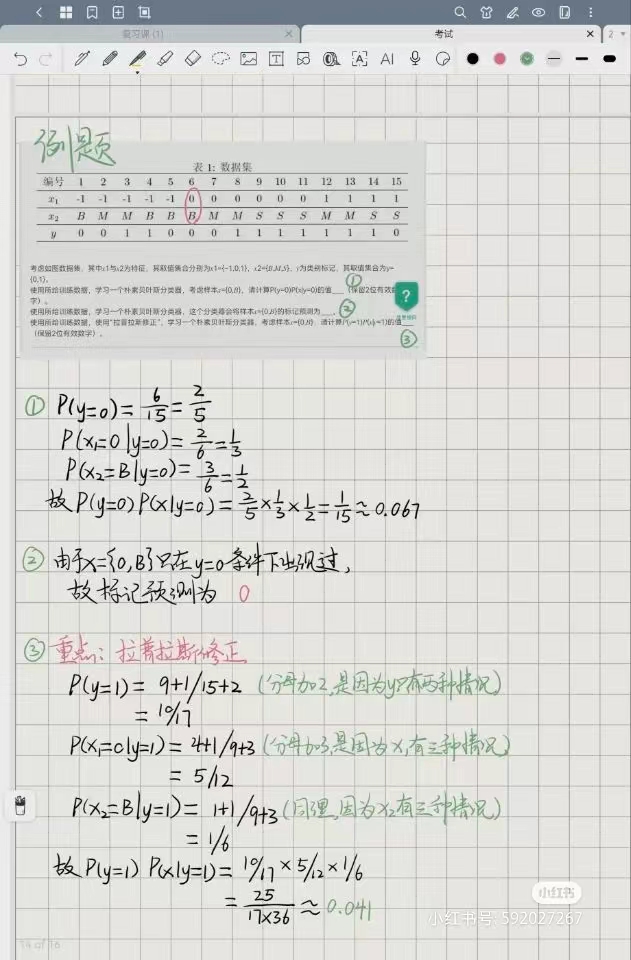 复习课 (1)
考试
2
例题
表 1: 数据集
编号 1 2 3 4 5 6 7 8 9 10 11 12 13 14 15
x₁ -1 -1 -1 -1 -1 0 0 0 0 0 0 1 1 1 1
x₂ B M M B B B M M S S S M M S S
y 0 0 1 1 0 0 0 1 1 1 1 1 1 1 0
考虑如图数据集，其中x1与x2为特征，其取值集合分别为x1={-1,0,1}，x2={B,M,S}，y为类别标记，其取值集合为y={0,1}。
使用所给训练数据，学习一个朴素贝叶斯分类器，考虑样本x={0,B}，请计算P(y=0)P(x|y=0)的值___（保留2位有效数字）。
①
使用所给训练数据，学习一个朴素贝叶斯分类器，这个分类器会将样本x={0,B}的标记预测为___。
②
使用所给训练数据，使用"拉普拉斯修正"，学习一个朴素贝叶斯分类器，考虑样本x={0,B}，请计算P(y=1)P(x|y=1)的值___（保留2位有效数字）。
③
① P(y=0) = 6/15 = 2/5
P(x₁=0|y=0) = 2/6 = 1/3
P(x₂=B|y=0) = 3/6 = 1/2
故 P(y=0) P(x|y=0) = 2/5 × 1/3 × 1/2 = 1/15 ≈ 0.067
② 由于x={0,B}只在y=0条件下出现过,
故标记预测为 0
③ 重点: 拉普拉斯修正
P(y=1) = 9+1/15+2 (分母加2,是因为y只有两种情况)
= 10/17
P(x₁=0|y=1) = 4+1/9+3 (分母加3,是因为x₁有三种情况)
= 5/12
P(x₂=B|y=1) = 1+1/9+3 (同理,因为x₂有三种情况)
= 1/6
故 P(y=1) P(x|y=1) = 10/17 × 5/12 × 1/6
= 25/17×36 ≈ 0.041
小红书
小红书号: 592027267
14 of 16